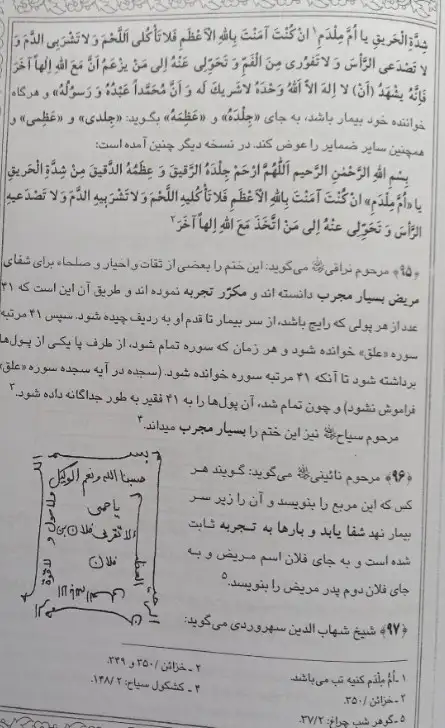 شِدَّةِ الْحَریقِ یا اُمَّ مِلْدَمِ ۱ اِنْ كُنْتَ آمَنْتَ بِاللهِ الْاَعْظَمِ فَلا تَأْكُلی اللَّحْمَ وَ لا تَشْرَبی الدَّمَ وَ
لا تَصْدَعی الرَّأْسَ وَ لا تَفُوری مِنَ الْفَمِّ وَ تَحَوَّلی عَنْهُ اِلی مَنْ یَزْعَمُ اَنَّ مَعَ اللهِ اِلهاً آخَرَ
فَاِنَّهُ یَشْهَدُ (اَنْ) لا اِلهَ اِلاَّ اللهُ وَحْدَهُ لا شَریكَ لَه وَ اَنَّ مُحَمَّداً عَبْدُهُ وَ رَسُولُهُ» و هرگاه
خواننده خود بیمار باشد، به جای «جِلْدَهُ» و «عَظْمَهُ» بگوید: «جِلدی» و «عَظْمی» و
همچنین سایر ضمایر را عوض کند. در نسخه دیگر چنین آمده است:
بِسْمِ اللهِ الرَّحْمنِ الرَّحیمِ اَللّهُمَّ ارْحَمْ جِلْدَهُ الرَّقیقَ وَ عِظْمَهُ الدَّقیقَ مِنْ شِدَّةِ الْحَریقِ
یا «اُمَّ مِلْدَمِ» اِنْ كُنْتَ آمَنْتَ بِاللهِ الْاَعْظَمِ فَلا تَأْكُلیهِ اللَّحْمَ وَ لا تَشْرَبیهِ الدَّمَ وَ لا تَصْدَعیهِ
الرَّأْسَ وَ تَحَوَّلی عَنْهُ اِلی مَنْ اتَّخَذَ مَعَ اللهِ اِلهاً آخَرَ ۲
﴿۹۵﴾ مرحوم نراقی می‌گوید: این ختم را بعضی از ثقات و اخیار و صلحاء برای شفای
مریض بسیار مجرب دانسته اند و مکرّر تجربه نموده اند و طریق آن این است که ۴۱
عدد از هر پولی که رایج باشد، از سر بیمار تا قدم او به ردیف چیده شود. سپس ۴۱ مرتبه
سوره «علق» خوانده شود و هر زمان که سوره تمام شود، از طرف پا یکی از پول‌ها
برداشته شود تا آنکه ۴۱ مرتبه سوره خوانده شود. (سجده در آیه سجده سوره «علق»
فراموش نشود) و چون تمام شد، آن پول‌ها را به ۴۱ فقیر به طور جداگانه داده شود. ۳
مرحوم سیاح نیز این ختم را بسیار مجرب میداند. ۴
﴿۹۶﴾ مرحوم نائینی می‌گوید: گویند هر
کس که این مربع را بنویسد و آن را زیر سر
بیمار نهد شفا یابد و بارها به تجربه ثابت
شده است و به جای فلان اسم مریض و به
جای فلان دوم پدر مریض را بنویسد. ۵
بسم
حسبنا الله ونعم الوکیل
یا حمی
لا تقربی فلان بن
فلان
﴿۹۷﴾ شیخ شهاب الدین سهروردی می‌گوید:
۱ - اُمُّ مِلْدَم کنیه تب می‌باشد.
۲ - خزائن / ۳۵۰ و ۲۴۹.
۳ - خزائن / ۳۵۰.
۴ - کشکول سیاح: ۱۴۸/۲.
۵ - گوهر شب چراغ: ۳۷/۲.